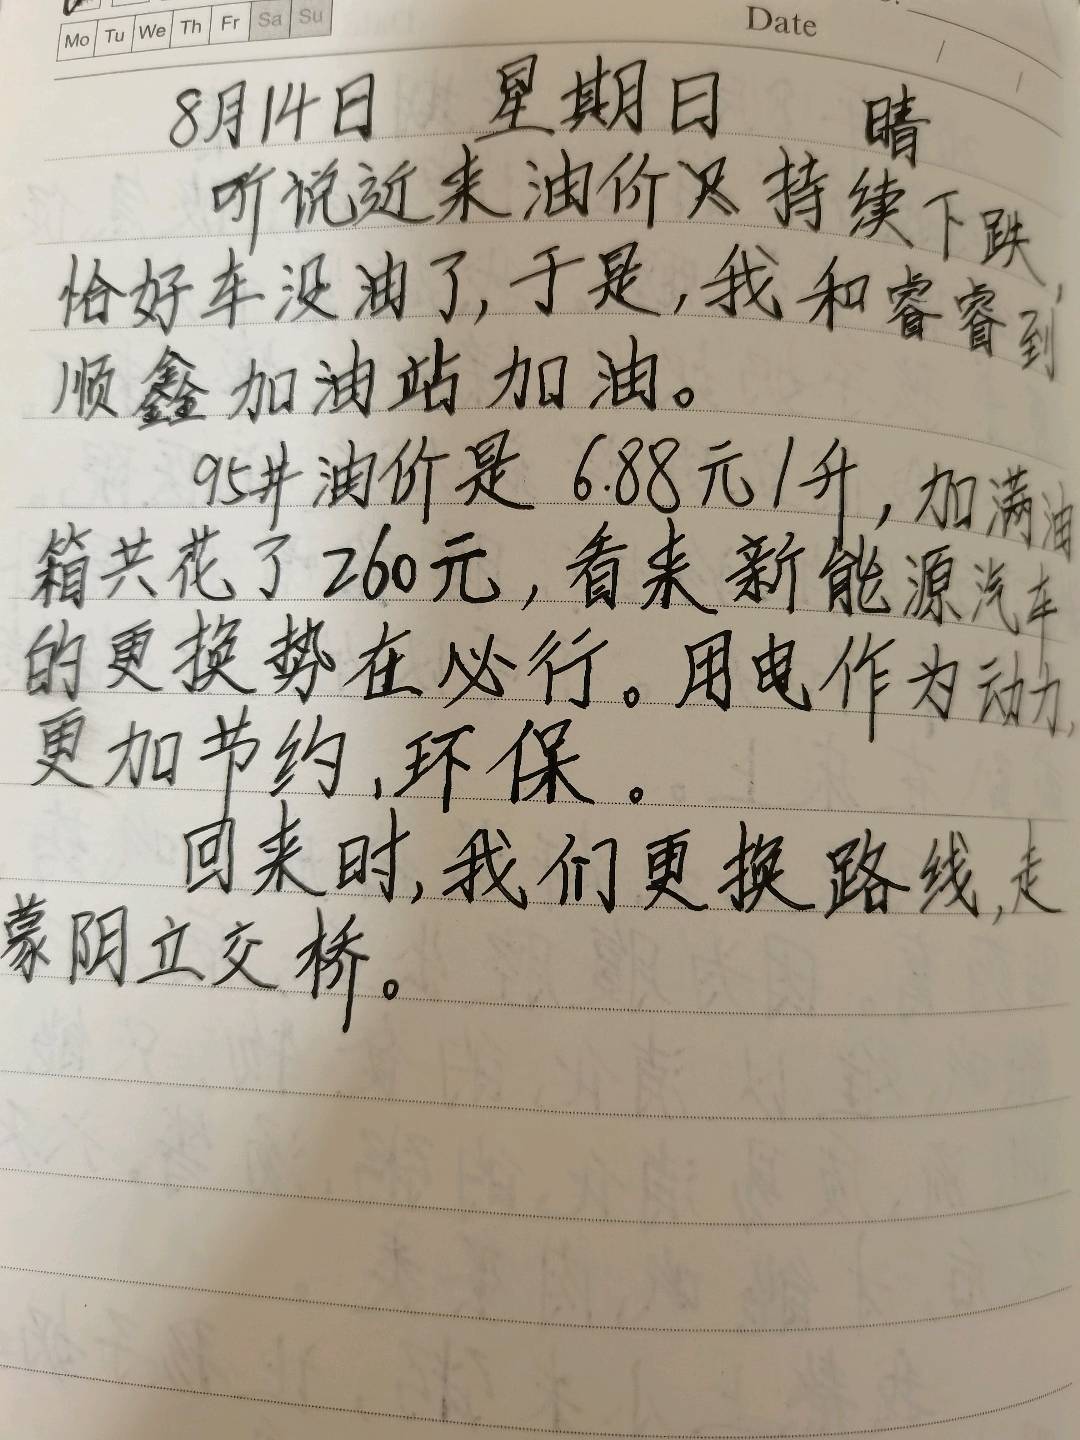 Mo Tu We Th Fr Sa Su
Date
8月14日 星期日 晴
听说近来油价又持续下跌,
恰好车没油了,于是,我和睿睿到
顺鑫加油站加油。
95#油价是 6.88元/升,加满油
箱共花了260元,看来新能源汽车
的更换势在必行。用电作为动力,
更加节约,环保。
回来时,我们更换路线,走
蒙阴立交桥。